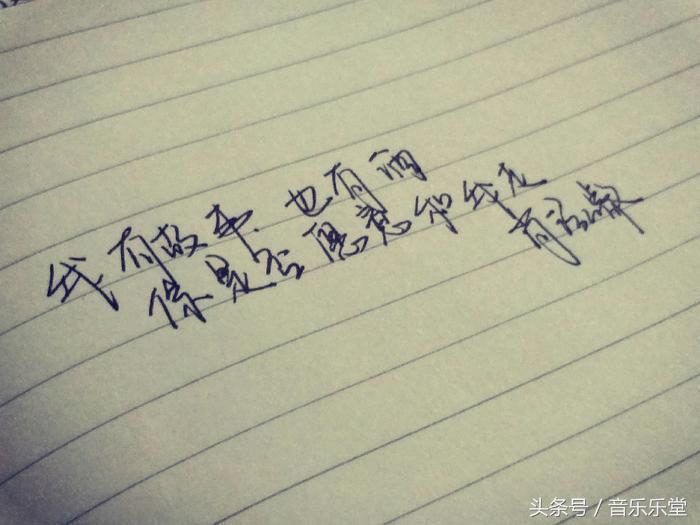 我有故事.也有酒
你是否愿意和我走
头条号 / 音乐乐堂